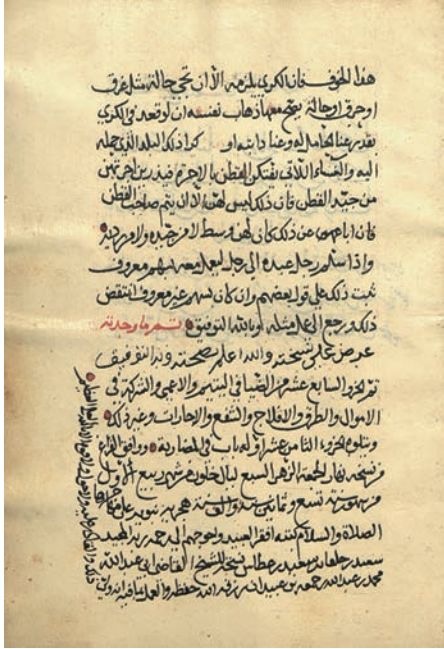 هذا الخوف فان الكري يلزمه الا ان تجي حالة مثل غرق
او حرق او حالة معها ذهاب نفسه ان لو قعد في الكري
بقدر عنا الحامل له وعنا دابته او كراء تلك البلد الذي حمله
اليه والنساء اللاتي يفتكن القطن بالاجرة فيدرين اجرتهن
من جيد القطن فان ذلك ليس لهن الا ان يتم صاحب القطن
فان عن ذلك كان لهن وسط لا من جيده ولا من رديه
واذا سلم رجل عبده الى رجل ليعمل معه بسهم معروف
ثبت ذلك على قول بعضهم وان كان بسهم غير معروف انتقض
ذلك ورجع الى عمل مثله وبالله التوفيق تم ما وجدته
عرض على نسخته والله اعلم بصحته وبه التوفيق
تم الجزو السابع عشر من الضيا في اليتيم والاعمى والشركة في
الاموال والطرق والافلاج والشفع والاجارات وغير ذلك
ويتلوه الجزو الثامن عشر اوله باب في المضاربة ووافق الفراغ
من نسخه نهار الجمعة الزهرا لسبع ليال خلون من شهر ربيع الاول
من شهور سنة تسع وثمانين سنة والف سنة هجرية نبوية على مهاجرها
الصلاة والسلام كتبه افقر العبيد واحوجهم الى رحمة ربه المجيد
سعيد بن خلفان بن سعيد نسخه للشيخ القاضي ابي عبد الله
محمد بن عبد الله بن جمعة بن عبيدان رزقه الله حفظه والعمل بما فيه انه ولي
ذلك والقادر عليه ولا حول ولا قوة الا بالله العلي العظيم